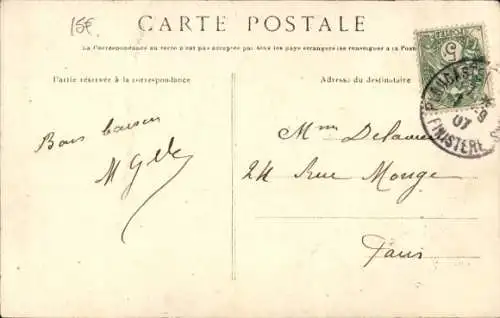 15€
CARTE POSTALE
La Correspondance au verso n'est pas acceptée par tous les pays étrangers (se renseigner à la Poste
Partie réservée à la correspondance
Adresse du destinataire
5
07
FINISTERE
Bons baisers
Mme
24 Rue Monge
Paris